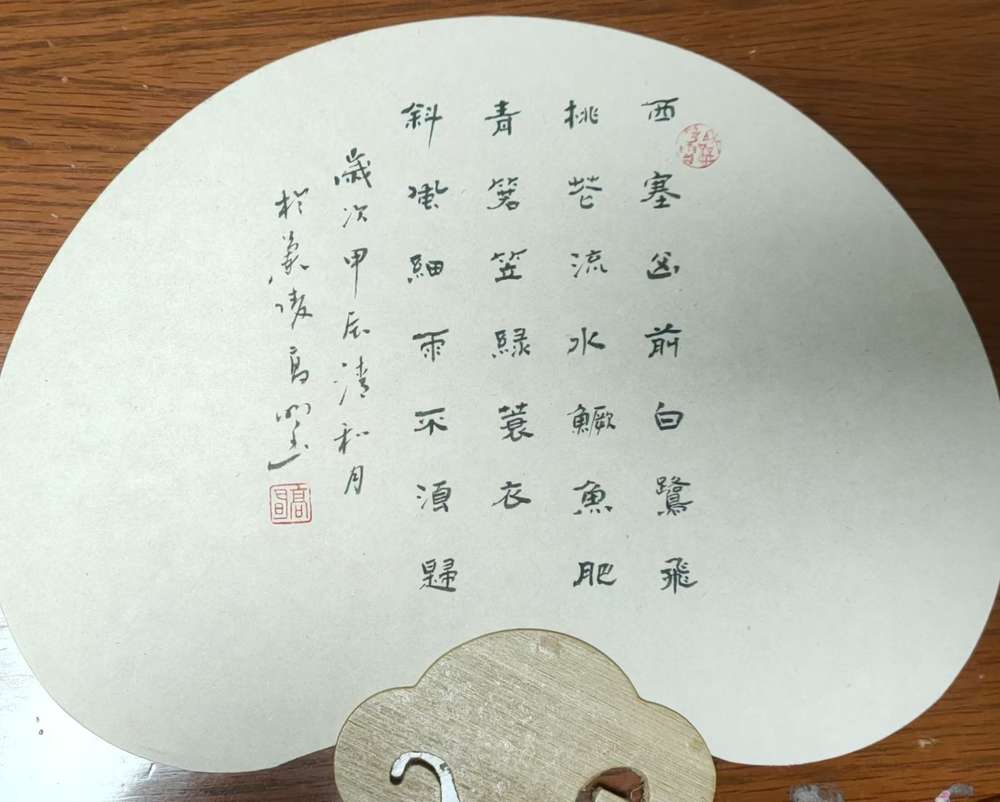 西塞山前白鷺飛
桃花流水鱖魚肥
青箬笠綠蓑衣
斜風細雨不須歸
歲次甲辰清和月
於羊城高